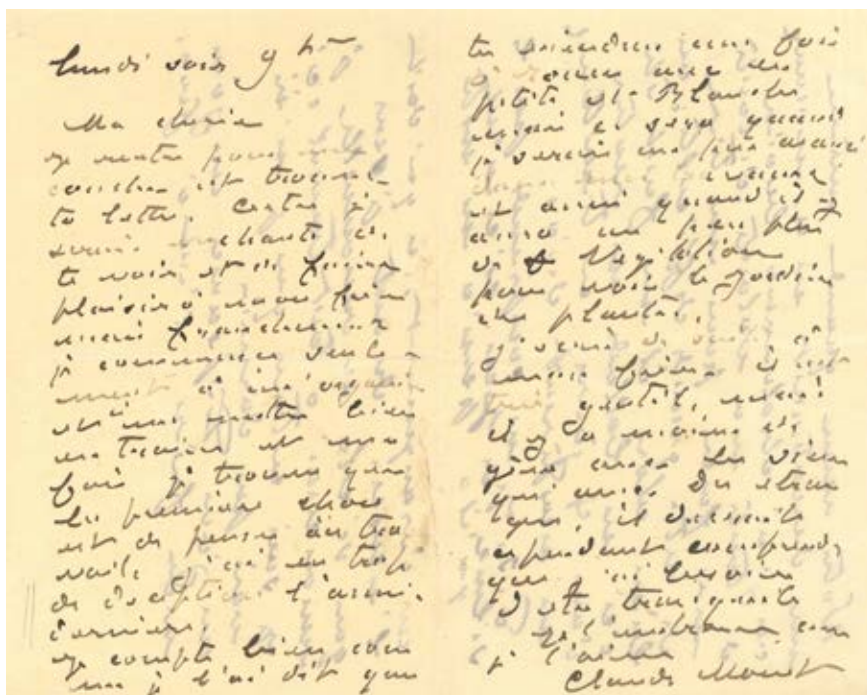 lundi soir 9 h
Ma chérie
je rentre pour me
coucher et trouve
ta lettre. Certes je
serais enchanté de
te voir et de faire
plaisir à mon frère
mais franchement
je commence seule-
ment à m'organi
et à me mettre bien
en train et une
fois je trouve que
la première chose
est de penser au tra
vail, j'ai eu trop
de déceptions l'année
dernière.
Je compte bien com
me je l'ai dit que
tu viendras une fois
avec les
petits et Blanche
mais ce sera quand
je serai un peu avancé
dans mes
et aussi quand il y
aura un peu plus
de végétation
pour voir le jardin
des plantes,
j'écris
mon frère il est
très gentil, mais
il y a moins de
gêne avec les siens
qu'avec des étran
gers, il devrait
cependant comprendre
que j'ai besoin
d'être tranquille
Je t'embrasse com
je t'aime
Claude Monet